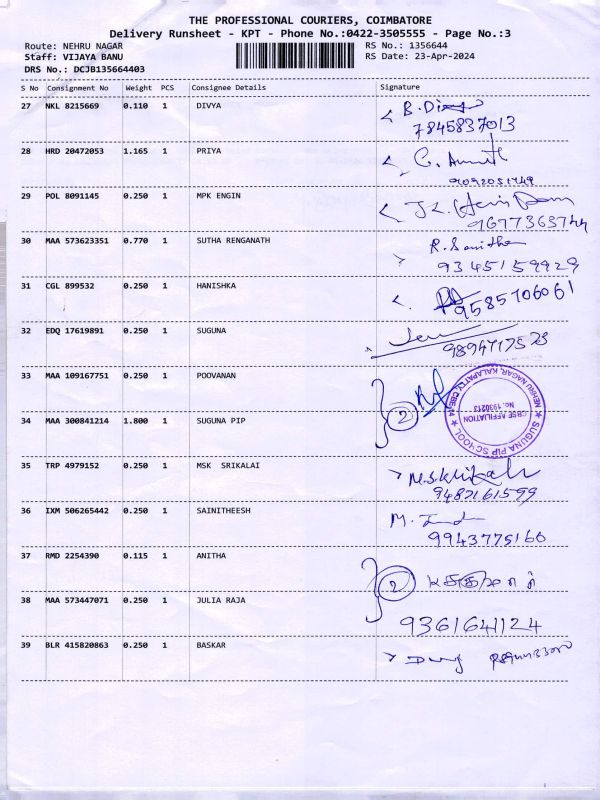 THE PROFESSIONAL COURIERS, COIMBATORE
Delivery Runsheet - KPT - Phone No.:0422-3505555 - Page No.:3
Route: NEHRU NAGAR RS No.: 1356644
Staff: VIJAYA BANU RS Date: 23-Apr-2024
DRS No.: DCJB135664403
S No Consignment No Weight PCS Consignee Details Signature
27 NKL 8215669 0.110 1 DIVYA
7845837013
28 HRD 20472053 1.165 1 PRIYA
29 POL 8091145 0.250 1 MPK ENGIN
30 MAA 573623351 0.770 1 SUTHA RENGANATH
9345159929
31 CGL 899532 0.250 1 HANISHKA
9585706061
32 EDQ 17619891 0.250 1 SUGUNA
33 MAA 109167751 0.250 1 POOVANAN
2
NEHRU NAGAR, KALAPATTI, CBE-14
CBSE AFFILIATION
No. 1930213
SUGUNA PIP SCHOOL
34 MAA 300841214 1.800 1 SUGUNA PIP
35 TRP 4979152 0.250 1 MSK SRIKALAI
9487161599
36 IXM 506265442 0.250 1 SAINITHEESH
9943775160
37 RMD 2254390 0.115 1 ANITHA
2
38 MAA 573447071 0.250 1 JULIA RAJA
9361641124
39 BLR 415820863 0.250 1 BASKAR